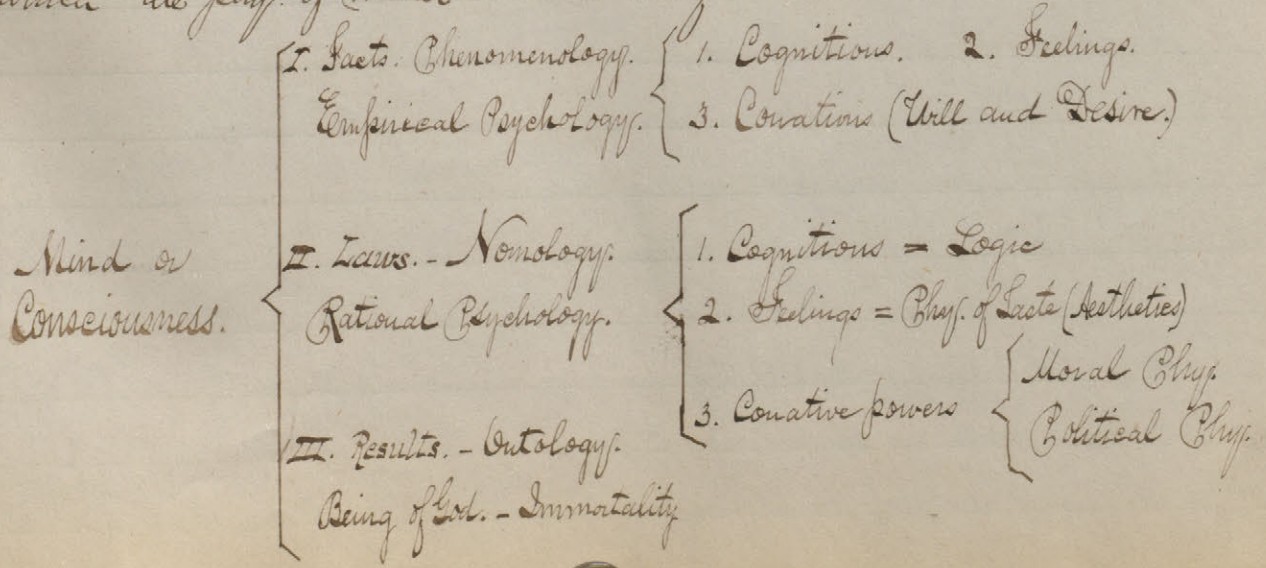 I. Facts. Phenomenology.
Empirical Psychology.
1. Cognitions. 2. Feelings.
3. Conations (Will and Desire.)
Mind or
Consciousness.
II. Laws. - Nomology.
Rational Psychology.
1. Cognitions = Logic
2. Feelings = Phy. of Taste (Aesthetics)
3. Conative powers
Moral Phy.
Political Phy.
III. Results. - Ontology.
Being of God. - Immortality